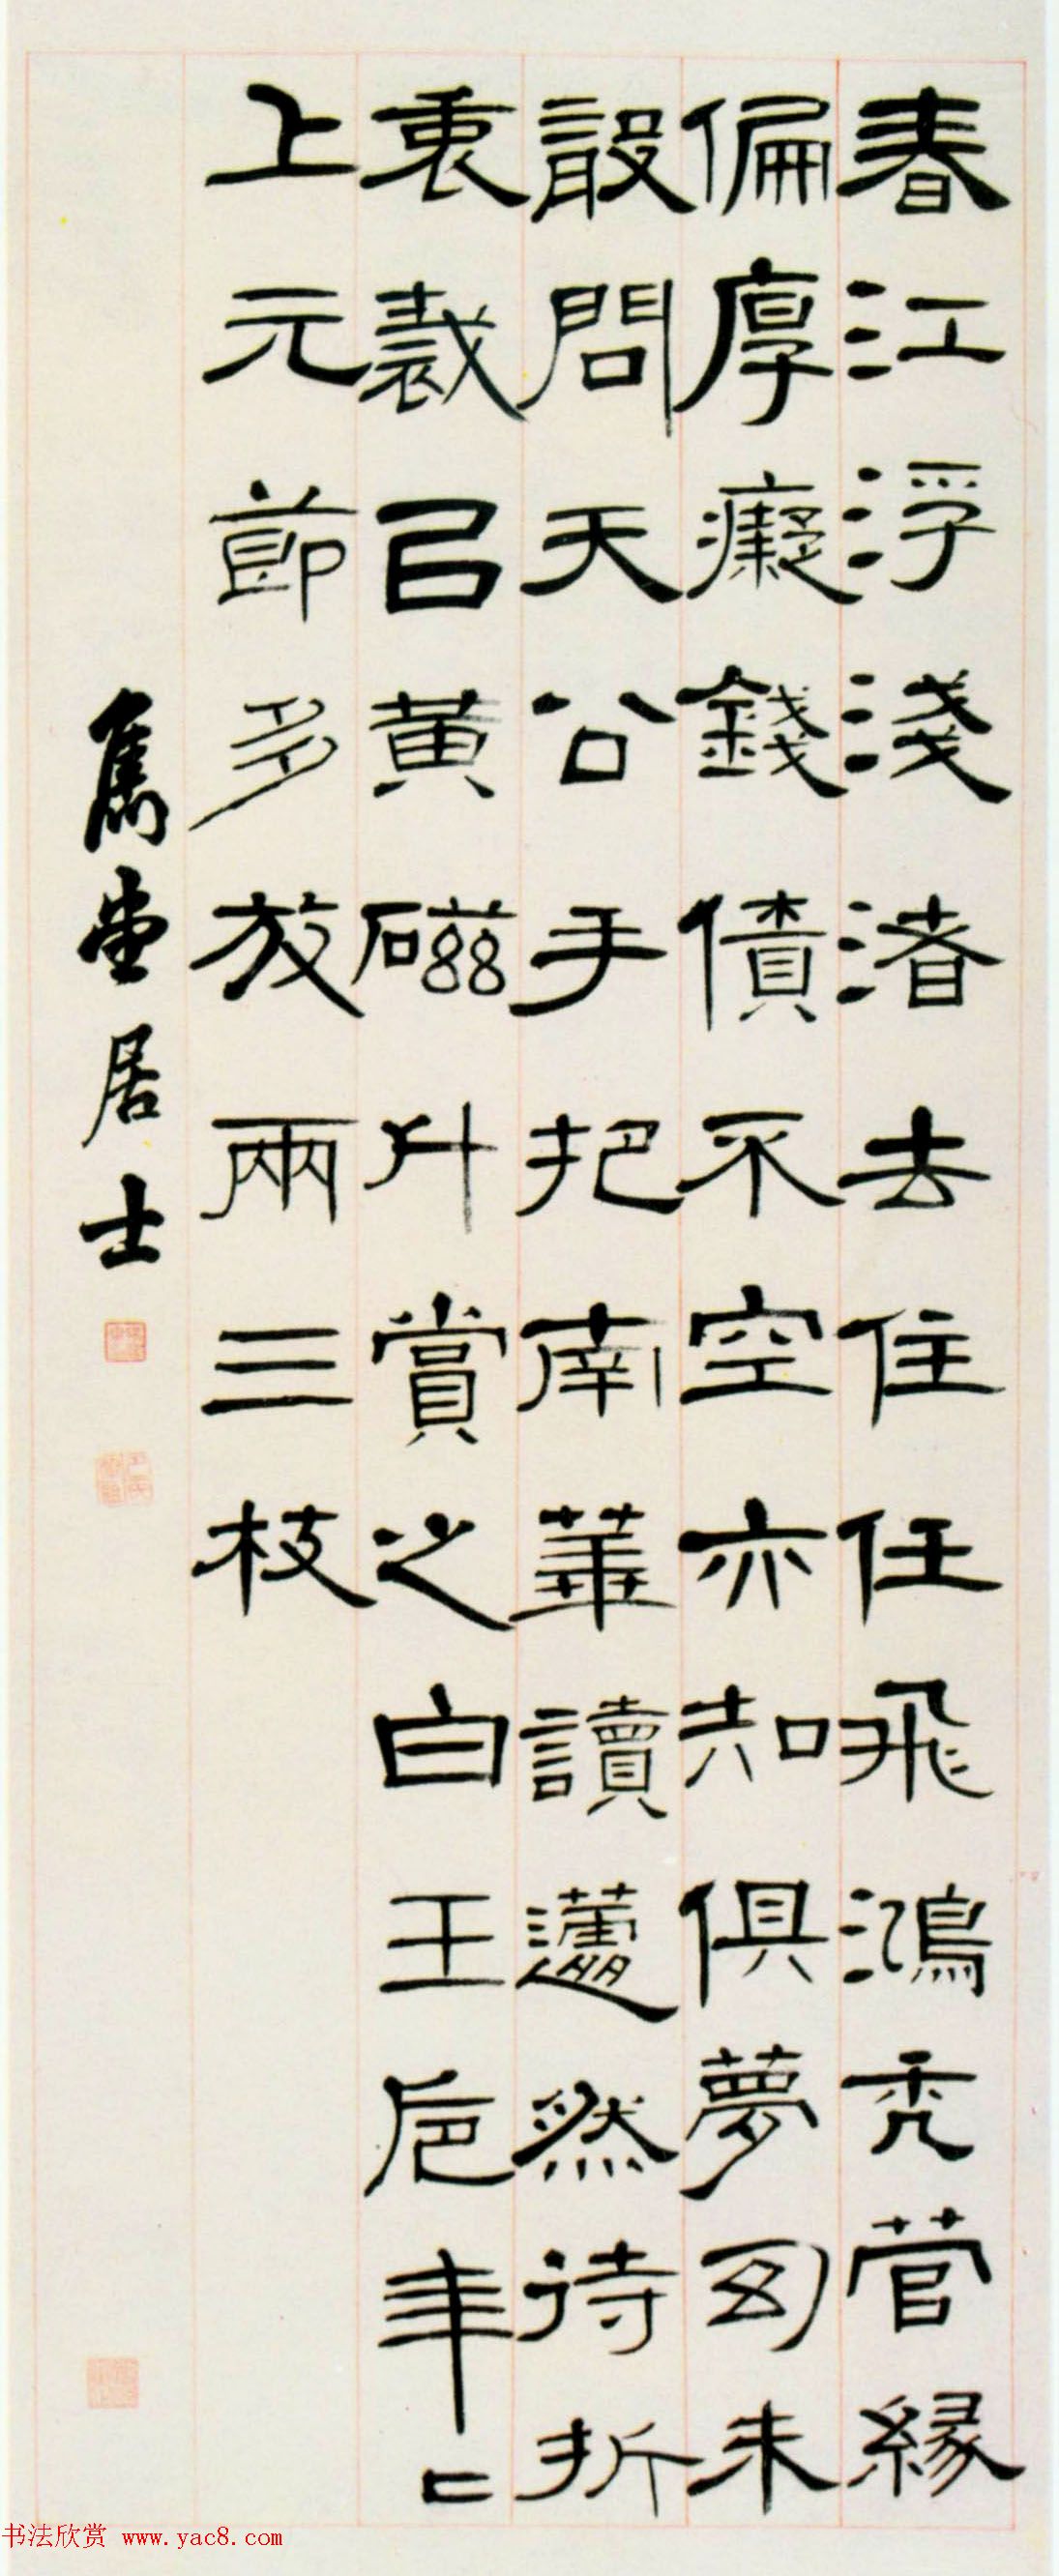 春江浮淺渚去住任飛鴻禿菅緣
偏厚癡錢債不空亦知俱夢幻未
設問天公手把南華讀蘧然待折
衷裁以黃磁升賞之白玉卮年〻
上元節多放兩三枝
雋堂居士
书法欣赏 www.yac8.com